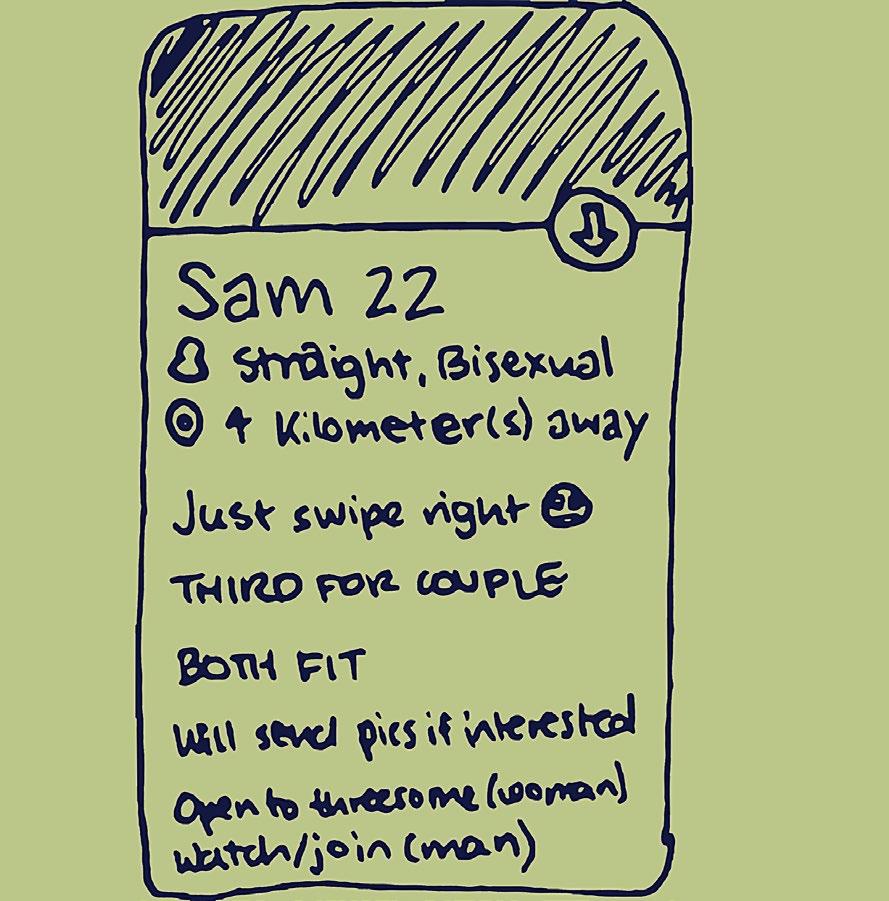 Sam 22
Straight, Bisexual
4 Kilometer(s) away
Just swipe right
THIRD FOR COUPLE
BOTH FIT
Will send pics if interested
Open to threesome (woman)
Watch/join (man)